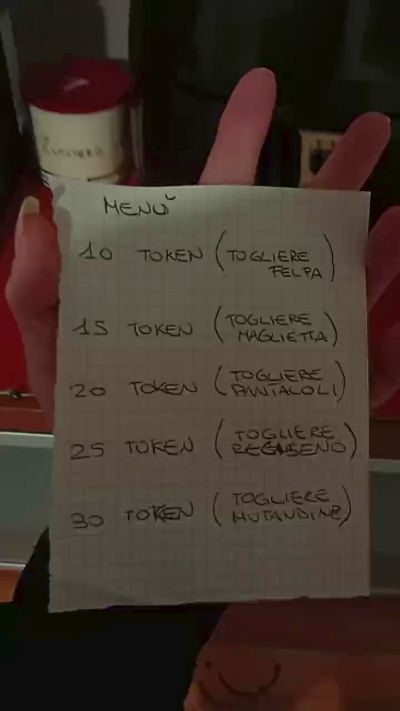 ZUCCHERO
MENÙ
10 TOKEN (TOGLIERE
FELPA)
15 TOKEN (TOGLIERE
MAGLIETTA)
20 TOKEN (TOGLIERE
PANTALOLI)
25 TOKEN (TOGLIERE
REGISENO)
30 TOKEN (TOGLIERE
MUTANDINE)